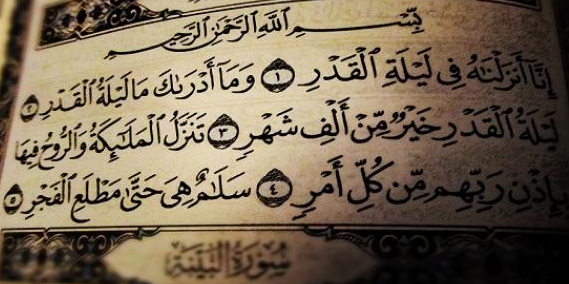 بِسْمِ ٱللَّهِ ٱلرَّحْمَٰنِ ٱلرَّحِيمِ
إِنَّآ أَنزَلْنَٰهُ فِى لَيْلَةِ ٱلْقَدْرِ ١ وَمَآ أَدْرَىٰكَ مَا لَيْلَةُ ٱلْقَدْرِ ٢
لَيْلَةُ ٱلْقَدْرِ خَيْرٌ مِّنْ أَلْفِ شَهْرٍ ٣ تَنَزَّلُ ٱلْمَلَٰٓئِكَةُ وَٱلرُّوحُ فِيهَا
بِإِذْنِ رَبِّهِم مِّن كُلِّ أَمْرٍ ٤ سَلَٰمٌ هِىَ حَتَّىٰ مَطْلَعِ ٱلْفَجْرِ ٥
سُورَةُ البَيِّنَة